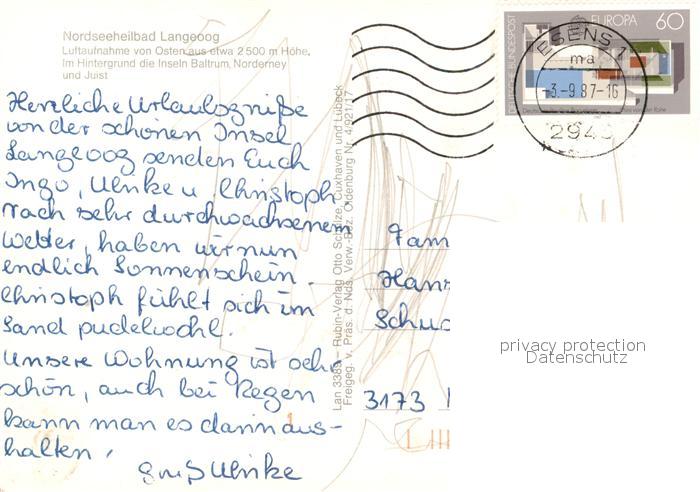 Nordseeheilbad Langeoog
Luftaufnahme von Osten aus etwa 2500 m Höhe.
Im Hintergrund die Inseln Baltrum, Norderney
und Juist
Herzliche Urlaubsgrüße
von der schönen Insel
Langeoog senden Euch
Ingo, Ulrike u. Christoph.
Nach sehr durchwachsenem
Wetter, haben wir nun
endlich Sonnenschein.
Christoph fühlt sich im
Sand pudelwohl.
Unsere Wohnung ist sehr
schön, auch bei Regen
kann man es darin aus-
halten.
Gruß Ulrike
Lan 3389 Rubin-Verlag Otto Schulze, Cuxhaven und Lübeck
Freigeg. v. Präs. d. Nds. Verw.-Bez. Oldenburg Nr. 4/921/17
DEUTSCHE BUNDESPOST
EUROPA 60
ESENS 1
ma
-3.-9.87-16
294
Fam
Hans
Schu
3173
privacy protection
Datenschutz